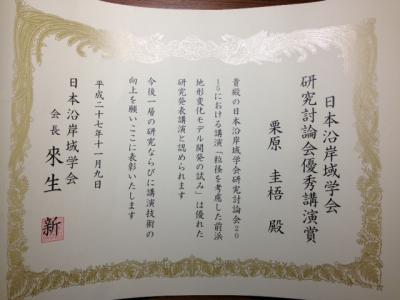 日本沿岸域学会
研究討論会優秀講演賞
栗原 圭梧 殿
貴殿の日本沿岸域学会研究討論会20
15における講演「粒径を考慮した前浜
地形変化モデル開発の試み」は優れた
研究発表講演と認められます
今後一層の研究ならびに講演技術の
向上を願いここに表彰いたします
平成二十七年十一月九日
日本沿岸域学会
会長 來生 新